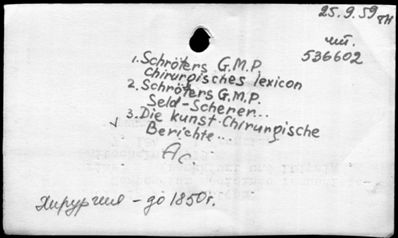 25.9.59 тн
чит.
536602
1. Schröters G.M.P.
Chirurgisches lexicon
2. Schröters G.M.P.
Seld-Scherer...
3. Die kunst-Chirurgische
Berichte...
Ac.
Хирургия - до 1850г.